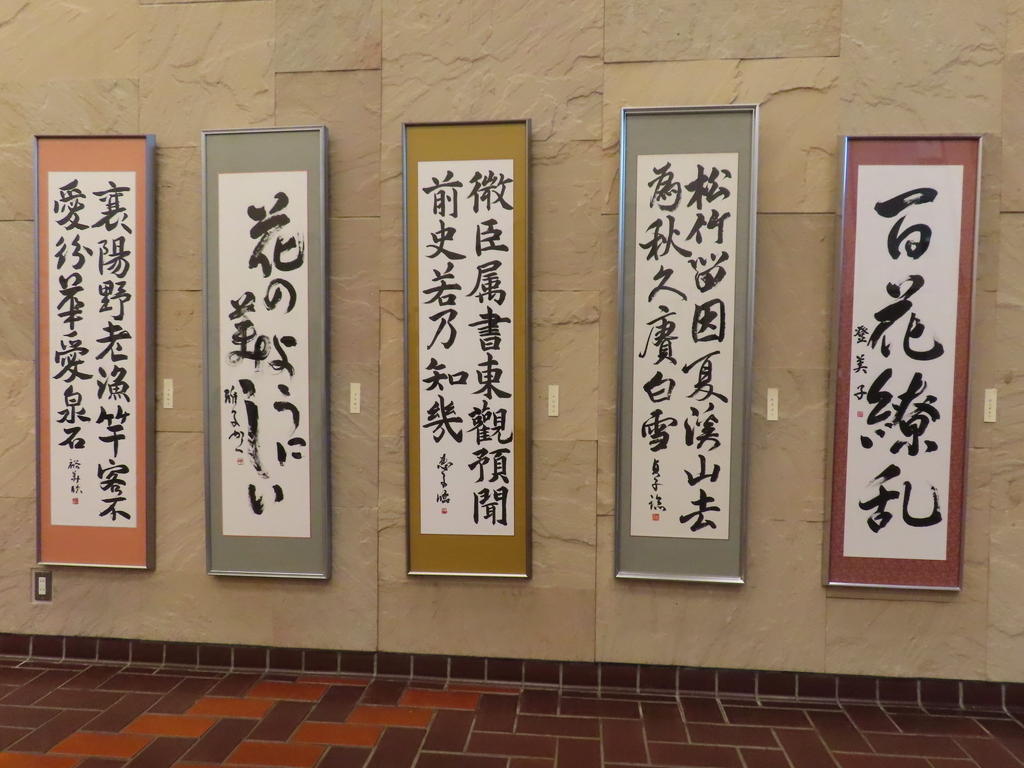 襄陽野老漁竿客不
愛紛華愛泉石
花のように
美しい
微臣属書東觀預聞
前史若乃知幾
松竹留因夏溪山去
為秋久賡白雪
貞子臨
百花繚乱
登美子